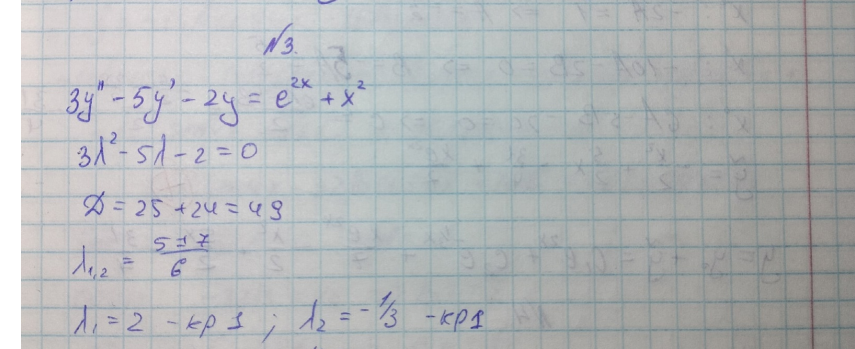 №3.
3y'' - 5y' - 2y = e^{2x} + x^2
3λ^2 - 5λ - 2 = 0
Д = 25 + 24 = 49
λ_{1,2} = \frac{5 ± 7}{6}
λ_1 = 2 - кр 1 ; λ_2 = -1/3 - кр 1